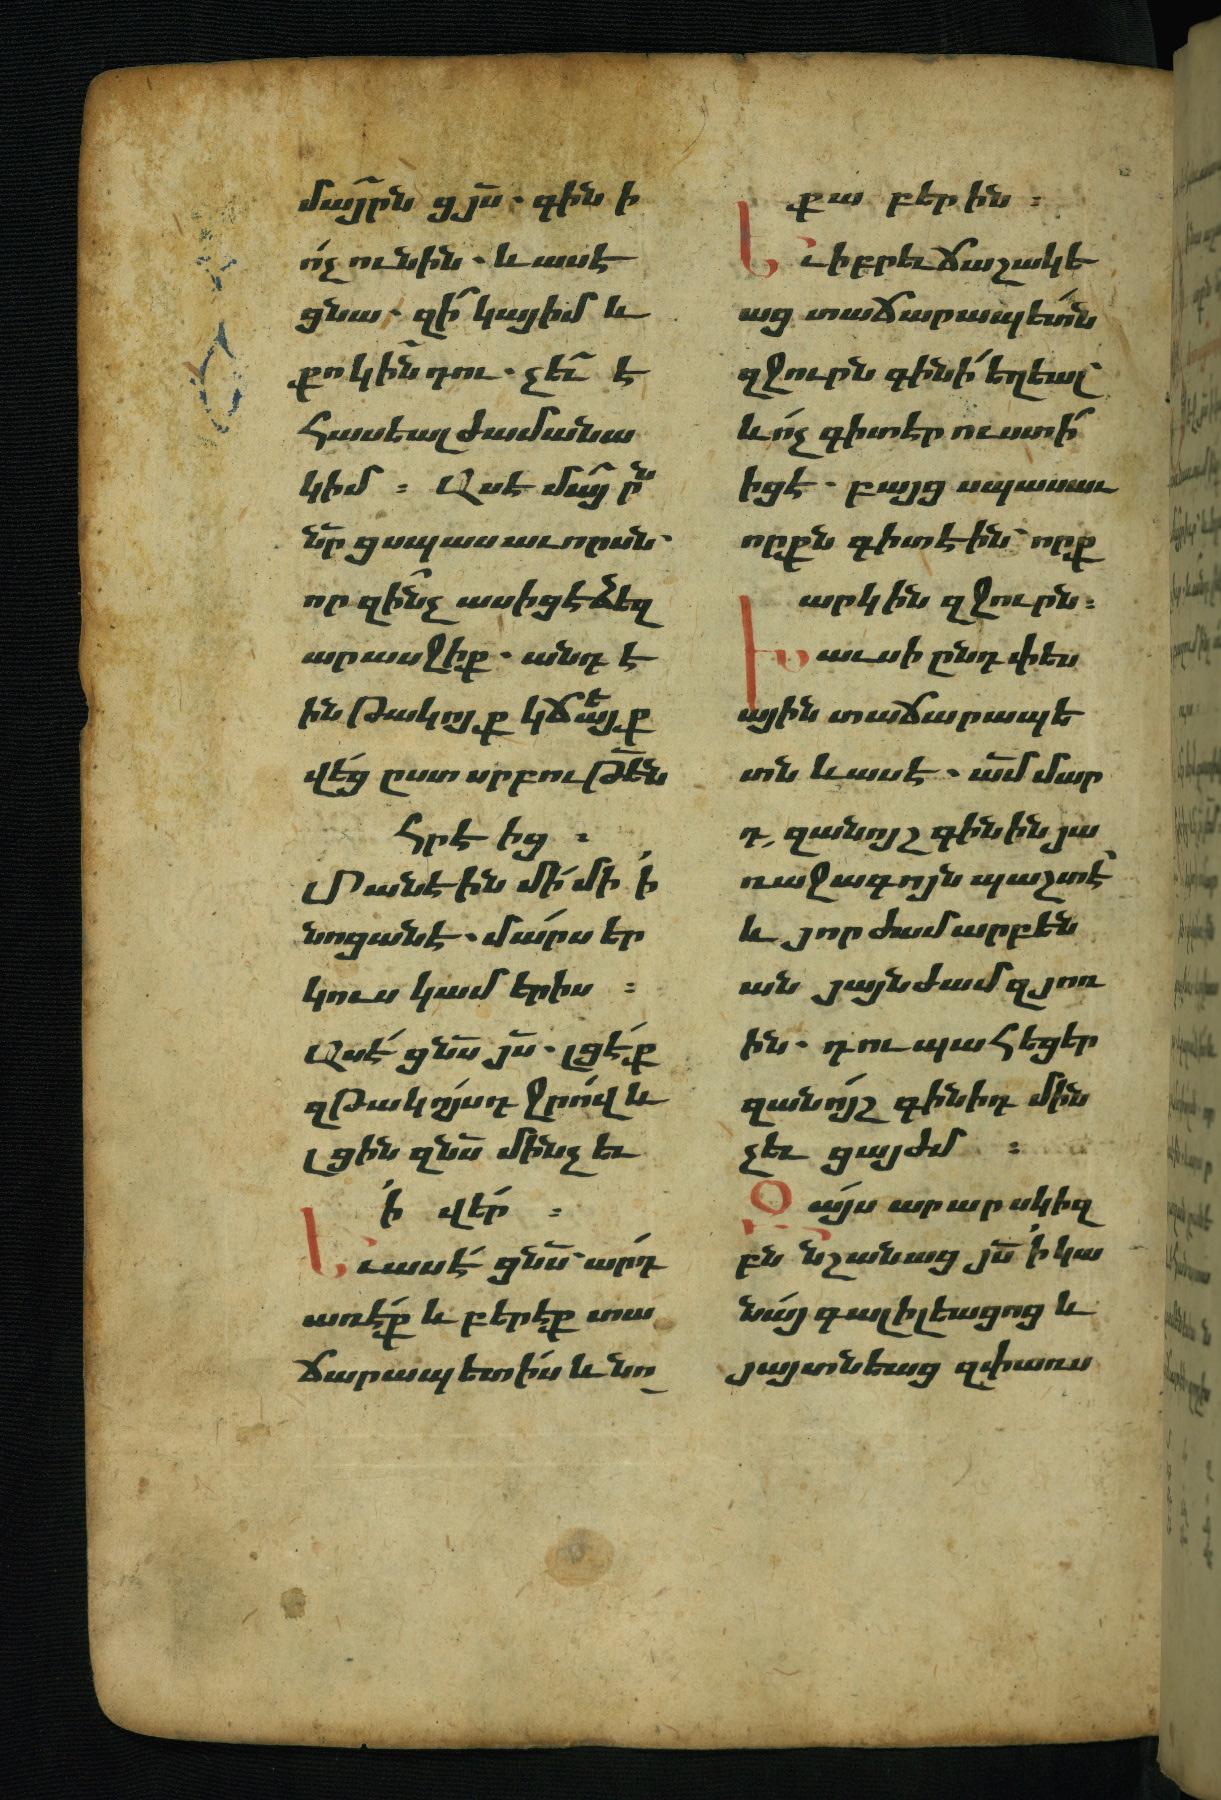 մայրն ցյս̄. գինի
ո՛չ ունին. և ասէ
ցնա. զի՞ կայ իմ և
քո կի՞ն դու. չև՞ է
հասեալ ժամանա
կիմ : Ասէ մայրն
նր̄ ցսպասաւորսն.
որ զինչ ասիցէ ձեզ
արասջիք. անդ է
ին թակոյք կճեայք
վեց ըստ սրբութեն̄
հրէից :
Տանէին մի մի ի
նոցանէ. մարս եր
կուս կամ երիս :
Ասէ ցնս̄ա յս̄. լցէ՛ք
զթակոյսդ ջրով և
լցին զնս̄ա մինչեւ
ի վեր :
Եւ ասէ ցնս̄ա. արդ
առէք և բերէք տա
ճարապետիս և նո
քա բերին :
Եւ իբրեւ ճաշակե
աց տաճարապետն
զջուրն գինի եղեալ
և ո՛չ գիտէր ուստի՛
իցէ. բայց սպասաւ
որքն գիտէին. որք
արկին զջուրն :
Խաւսի ընդ փես
ային տաճարապե
տն և ասէ. ամ̄ մար
դ, զանոյշ գինին յա
ռաջագոյն պաշտէ՛
և յորժամ արբեն
ան յայնժամ զյոռ
ին. դու պահեցեր
զանոյշ գինիդ մին
չեւ ցայժմ :
Զայս արար սկիզ
բն նշանաց յս̄ ի կա
նայ գալիլեացոց և
յայտնեաց զփառս